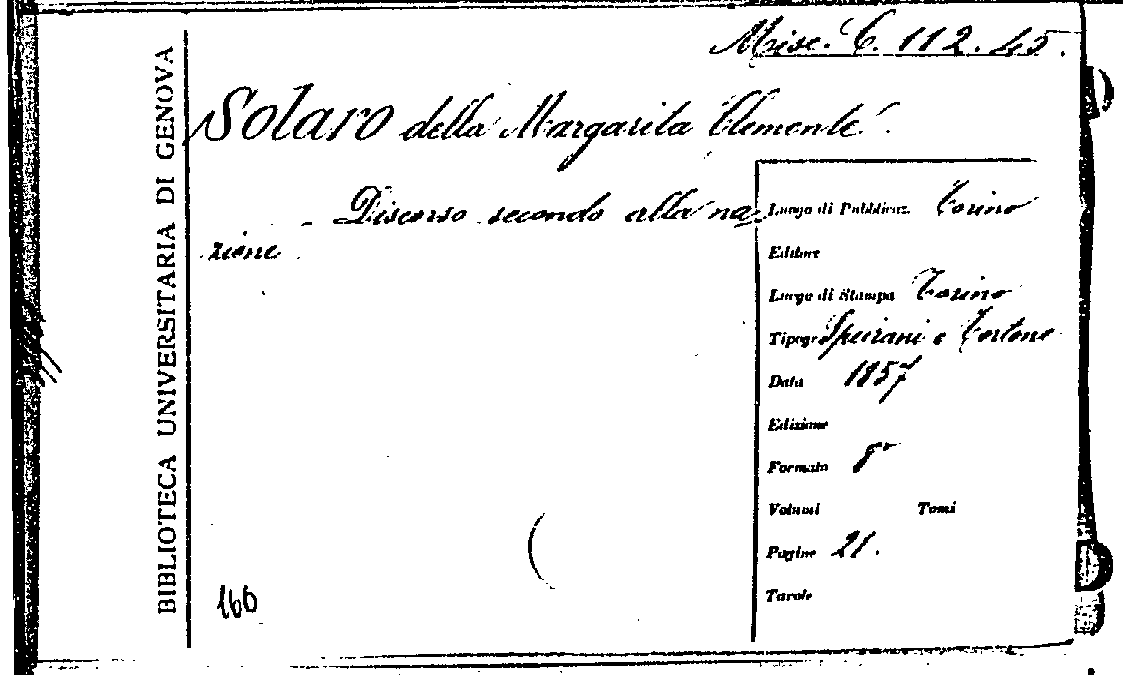 Misc. C. 112. 45.
BIBLIOTECA UNIVERSITARIA DI GENOVA
Solaro della Margarita Clemente.
- Discorso secondo alla na-
zione.
Luogo di Pubblicaz. Torino
Editore
Luogo di Stampa Torino
Tipogr. Speirani e Tortone
Data 1857
Edizione
Formato 8°
Volumi Tomi
Pagine 21.
Tavole
160